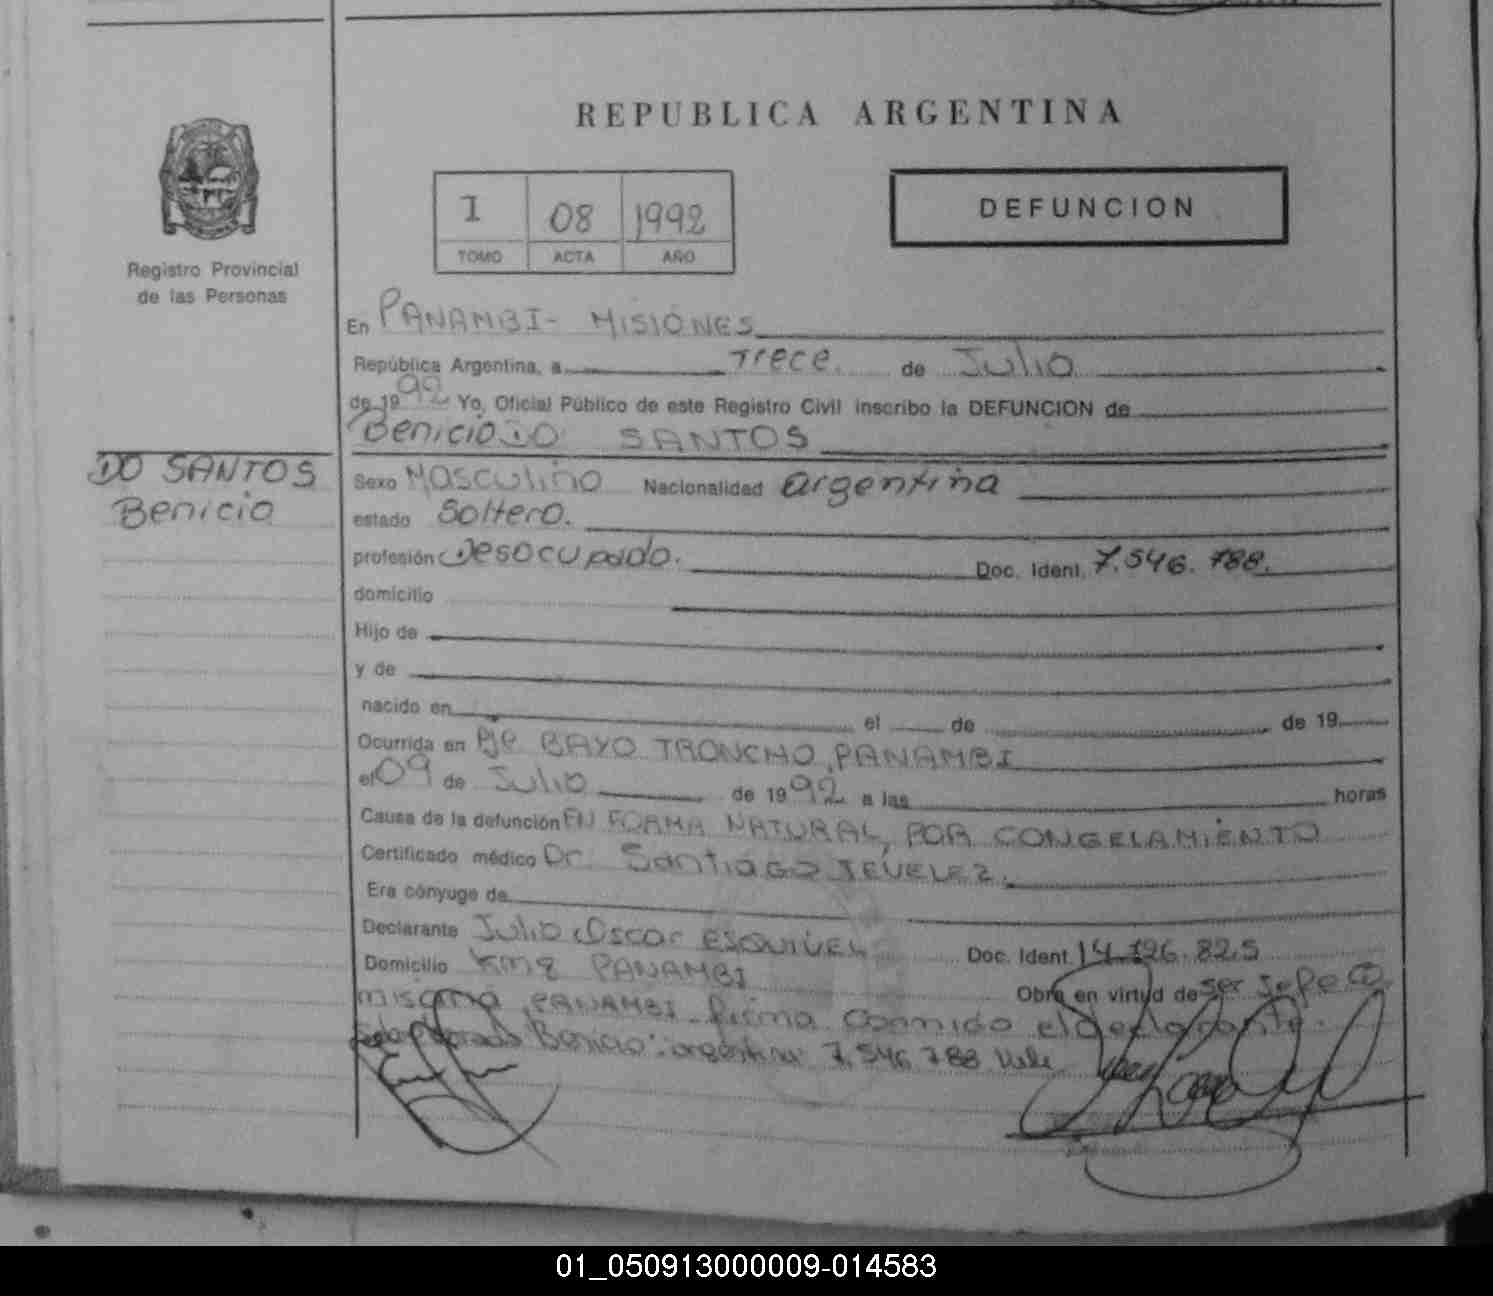 REPUBLICA ARGENTINA
1 08 1992
TOMO ACTA AÑO
DEFUNCION
Registro Provincial
de las Personas
En PANAMBI - MISIONES
República Argentina, a Trece de Julio
de 1992 Yo, Oficial Público de este Registro Civil inscribo la DEFUNCION de
Benicio DO SANTOS
DO SANTOS
Benicio
Sexo Masculino Nacionalidad argentina
estado Soltero.
profesión Desocupado. Doc. Ident. 7.546.788.
domicilio
Hijo de
y de
nacido en el de de 19
Ocurrida en Pje BAYO TRONCHO, PANAMBI
el 09 de Julio de 1992 a las horas
Causa de la defunción EN FORMA NATURAL, POR CONGELAMIENTO
Certificado médico Dr. Santiago JEVELEZ.
Era cónyuge de
Declarante Julio Oscar ESQUIVEL Doc. Ident. 14.126.825
Domicilio Km 8 PANAMBI Obra en virtud de ser Jefe
misaria PANAMBI. firma conmigo el declarante.
Benicio: argentina: 7.546.788 Vale
01_050913000009-014583